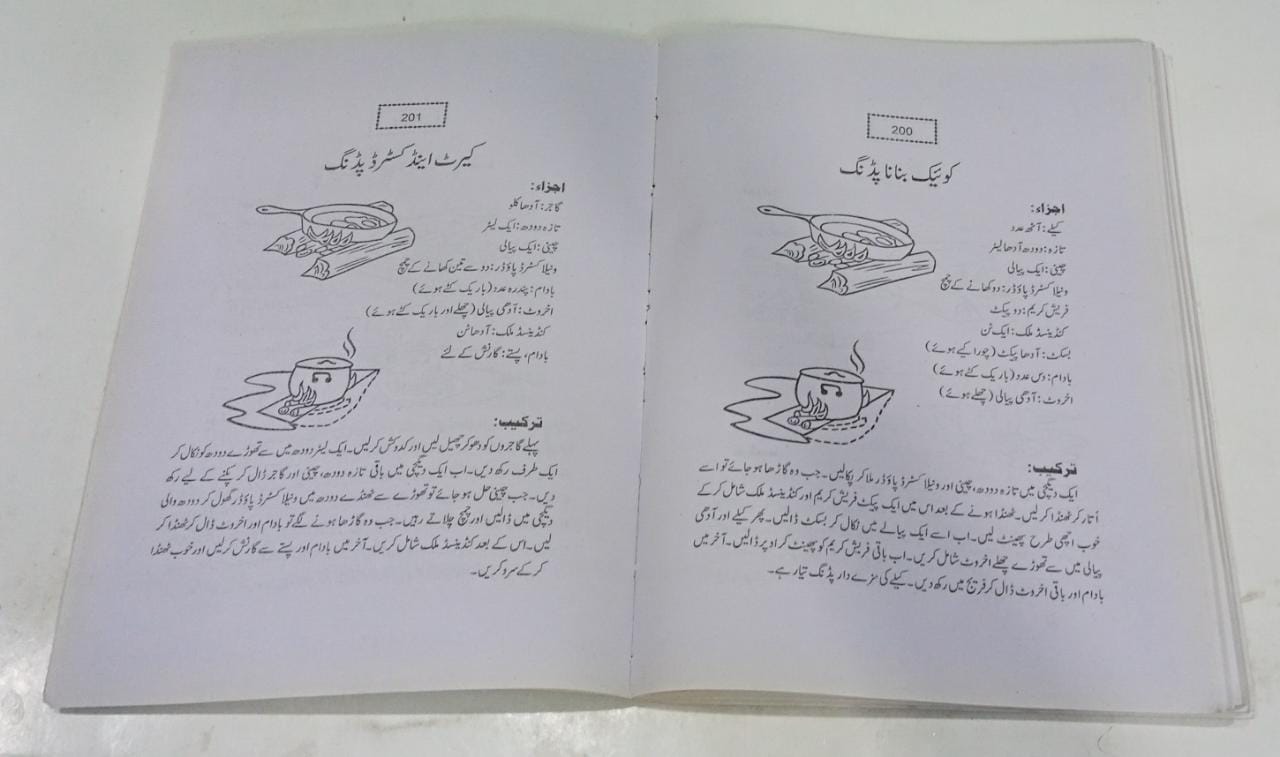 200
کوئیک بنانا پڈنگ
اجزاء:
کیلے: آٹھ عدد
تازہ: دودھ آدھا لیٹر
چینی: ایک پیالی
ونیلا کسٹرڈ پاؤڈر: دو کھانے کے چمچ
فریش کریم: دو پیکٹ
کنڈینسڈ ملک: ایک ٹن
بسکٹ: آدھا پیکٹ (چورا کیے ہوئے)
بادام: دس عدد (باریک کٹے ہوئے)
اخروٹ: آدھی پیالی (چھلے ہوئے)
ترکیب:
ایک دیگچی میں تازہ دودھ، چینی اور ونیلا کسٹرڈ پاؤڈر ملا کر پکالیں۔ جب وہ گاڑھا ہو جائے تو اسے
اُتار کر ٹھنڈا کرلیں۔ ٹھنڈا ہونے کے بعد اس میں ایک پیکٹ فریش کریم اور کنڈینسڈ ملک شامل کر کے
خوب اچھی طرح پھینٹ لیں۔ اب اسے ایک پیالے میں نکال کر بسکٹ ڈالیں۔ پھر کیلے اور آدھی
پیالی میں سے تھوڑے چھلے اخروٹ شامل کریں۔ اب باقی فریش کریم کو پھینٹ کر اوپر ڈالیں۔ آخر میں
بادام اور باقی اخروٹ ڈال کر فریج میں رکھ دیں۔ کیلے کی مزے دار پڈنگ تیار ہے۔
201
کیرٹ اینڈ کسٹرڈ پڈنگ
اجزاء:
گاجر: آدھا کلو
تازہ دودھ: ایک لیٹر
چینی: ایک پیالی
ونیلا کسٹرڈ پاؤڈر: دو سے تین کھانے کے چمچ
بادام: پندرہ عدد (باریک کٹے ہوئے)
اخروٹ: آدھی پیالی (چھلے اور باریک کٹے ہوئے)
کنڈینسڈ ملک: آدھا ٹن
بادام، پستے: گارنش کے لئے
ترکیب:
پہلے گاجروں کو دھو کر چھیل لیں اور کدوکش کرلیں۔ ایک لیٹر دودھ میں سے تھوڑے دودھ کو نکال کر
ایک طرف رکھ دیں۔ اب ایک دیگچی میں باقی تازہ دودھ، چینی اور گاجر ڈال کر پکنے کے لیے رکھ
دیں۔ جب چینی حل ہو جائے تو تھوڑے سے ٹھنڈے دودھ میں ونیلا کسٹرڈ پاؤڈر گھول کر دودھ والی
دیگچی میں ڈالیں اور چمچ چلاتے رہیں۔ جب وہ گاڑھا ہونے لگے تو بادام اور اخروٹ ڈال کر ٹھنڈا کر
لیں۔ اس کے بعد کنڈینسڈ ملک شامل کریں۔ آخر میں بادام اور پستے سے گارنش کرلیں اور خوب ٹھنڈا
کر کے سرو کریں۔